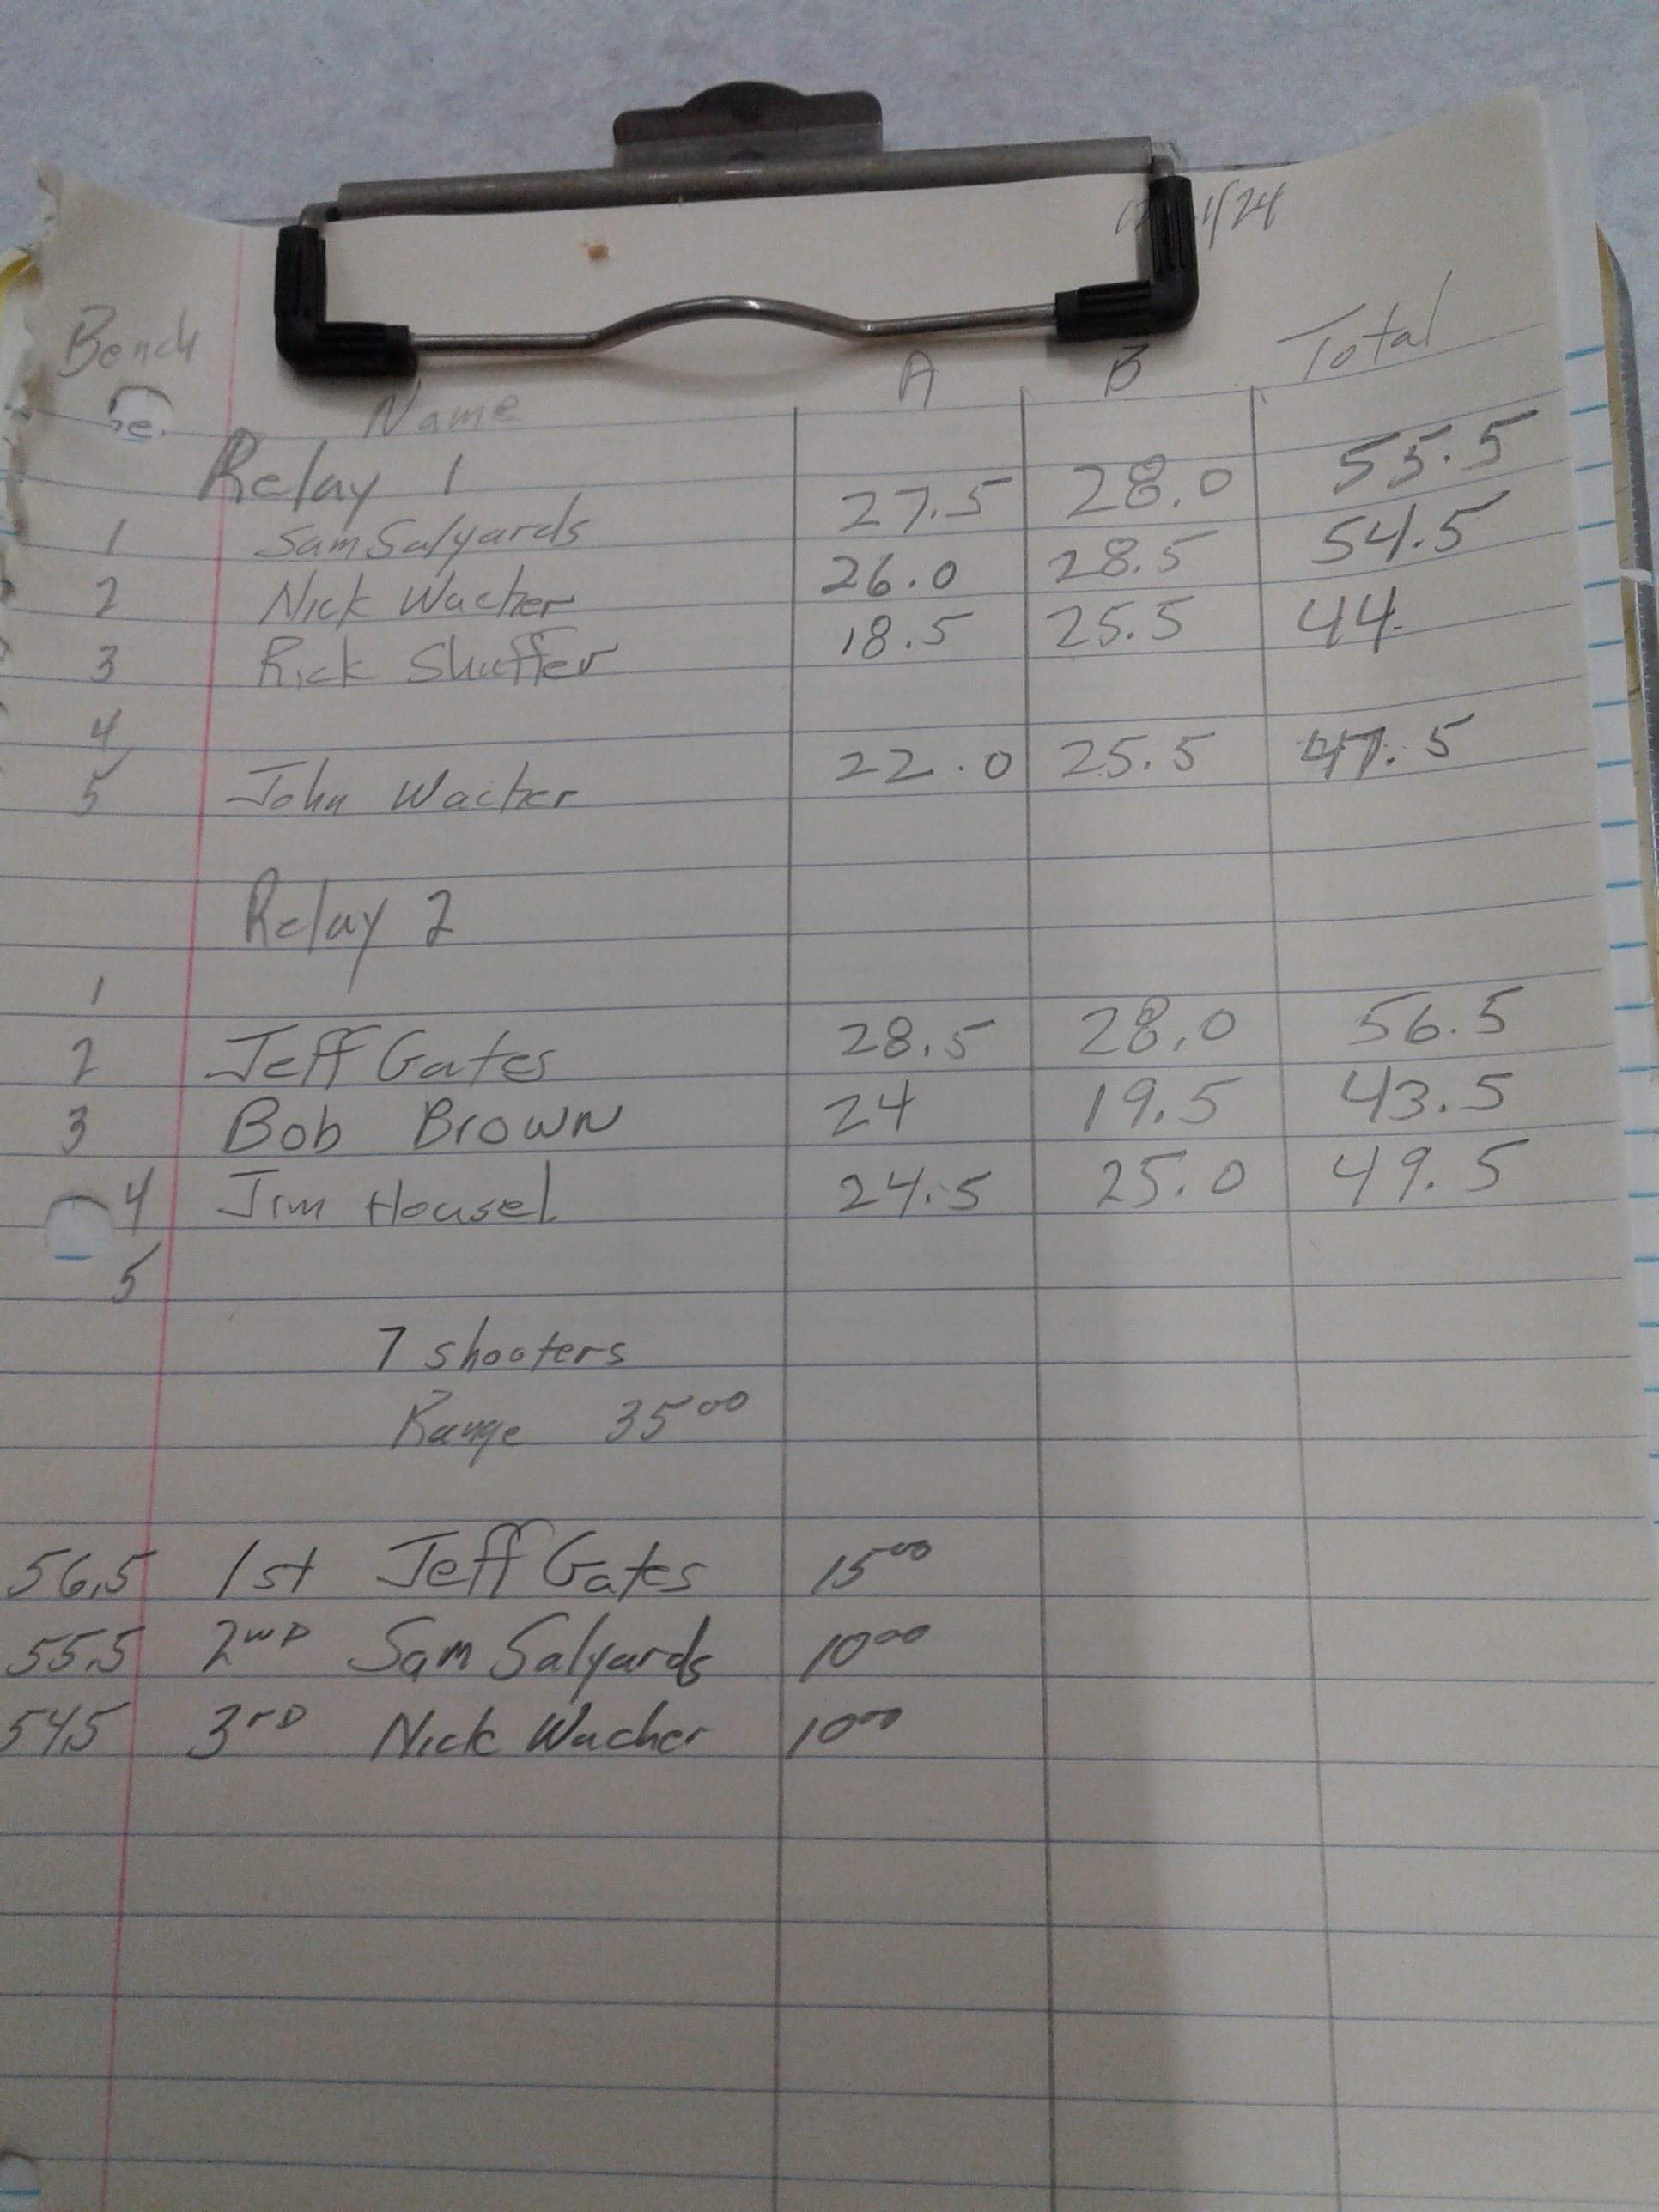 1/24
Bench Name A B Total
Relay 1
1 Sam Salyards 27.5 28.0 55.5
2 Nick Wacher 26.0 28.5 54.5
3 Rick Shuffer 18.5 25.5 44
4
5 John Wacher 22.0 25.5 47.5
Relay 2
1
2 Jeff Gates 28.5 28.0 56.5
3 Bob Brown 24 19.5 43.5
4 Jim Housel 24.5 25.0 49.5
5
7 shooters
Range 35 00
56.5 1st Jeff Gates 15 00
55.5 2ND Sam Salyards 10 00
54.5 3rD Nick Wacher 10 00